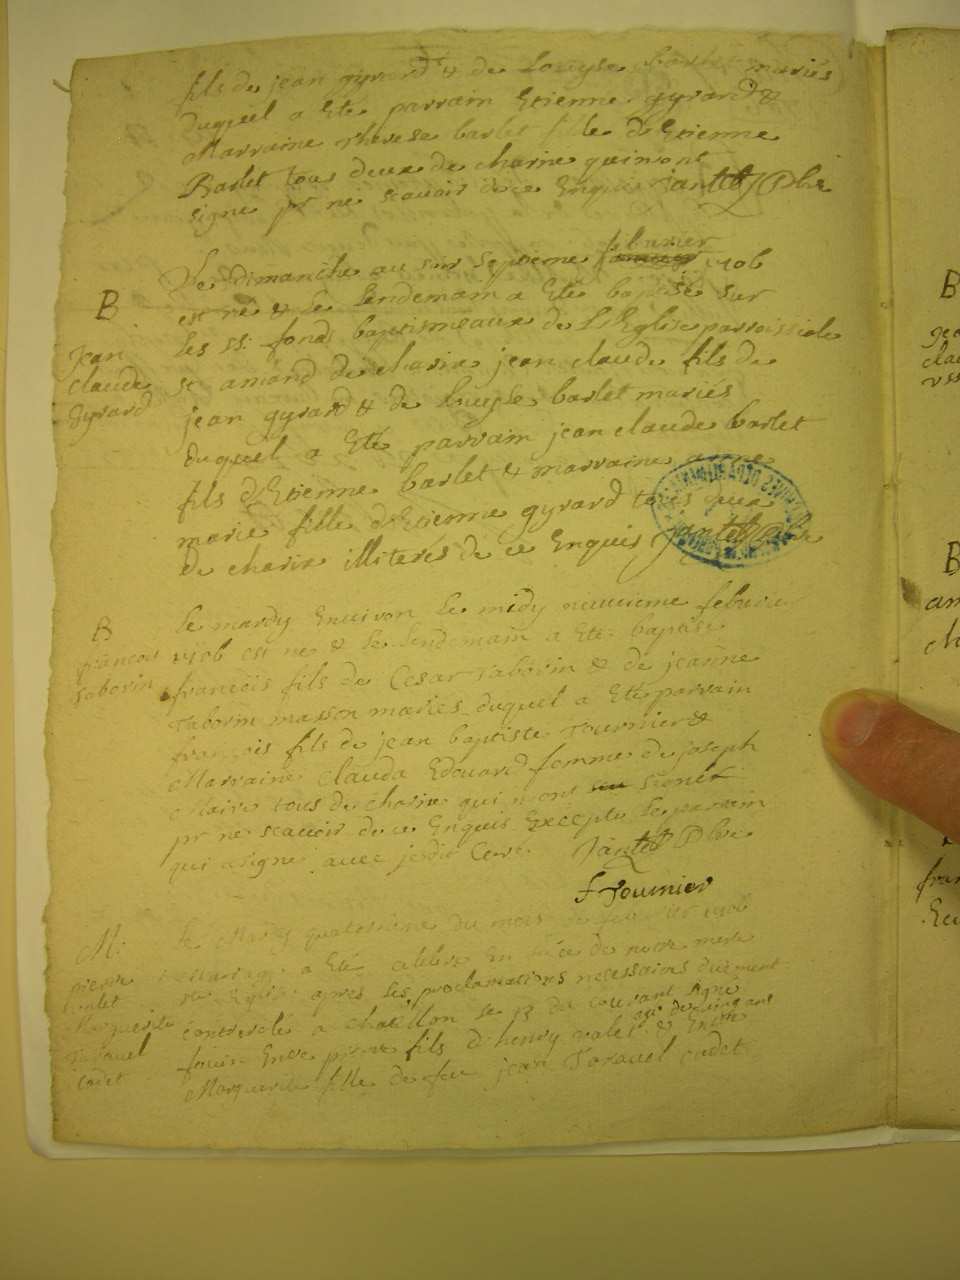 fils de jean gyrard & de Louyse barlet mariés
duquel a Eté parrain Etienne gyrard &
Marraine Therese barlet fille d'Etienne
Barlet tous deux de charin qui n'ont
signé pr ne scavoir de ce Enquis jantet Pbre
B
Jean
claude
Gyrard
Le dimanche au soir septieme febvrier 1706
est né & le lendemain a Eté baptisé sur
les ss. fonds baptismeaux de L'Eglise parroissiale
st amand de charin jean claude fils de
jean gyrard & de Louyse barlet mariés
duquel a Eté parrain jean claude barlet
fils d'Etienne barlet & marraine anne
marie fille d'Etienne gyrard tous deux
de charin illiterés de ce Enquis jantet Pbre
B
françois
taborin
Le mardy Environ Le midy neuvieme febvrier
1706 est né & le lendemain a Eté baptisé
françois fils de Cesar Taborin & de jeanne
Taborin masson mariés duquel a Eté parvain
françois fils de jean baptiste Tournier &
Marraine Clauda Edouard femme de joseph
Maire tous de charin qui n'ont signé
pr ne scavoir de ce Enquis Excepté le parvain
qui a signé avec je dit Curé. Jantet Pbre
f Tournier
M.
pierre
valet
Marguerite
Taravel
cadet
Le Mardy quatorsieme du mois de 1706
Mariage a Eté celebré En face de notre mere
ste Eglise apres les proclamations necessaires duement
controrolé a chatillon le 13 du courant signé
fouis. Entre pierre fils d'henry valet agé de cinq ans & Entre
Marguerite fille de feu jean Taravel cadet
B
B